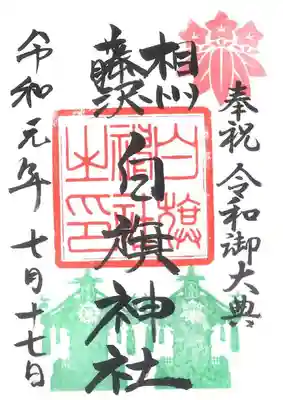 奉祝 令和御大典
相州
藤沢
白旗神社
白旗神社之印
令和元年 七月十七日